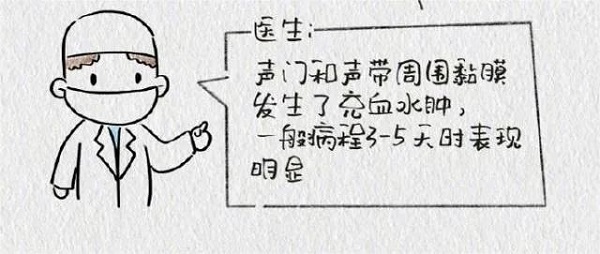 医生:
声门和声带周围黏膜
发生了充血水肿,
一般病程3-5天时表现
明显